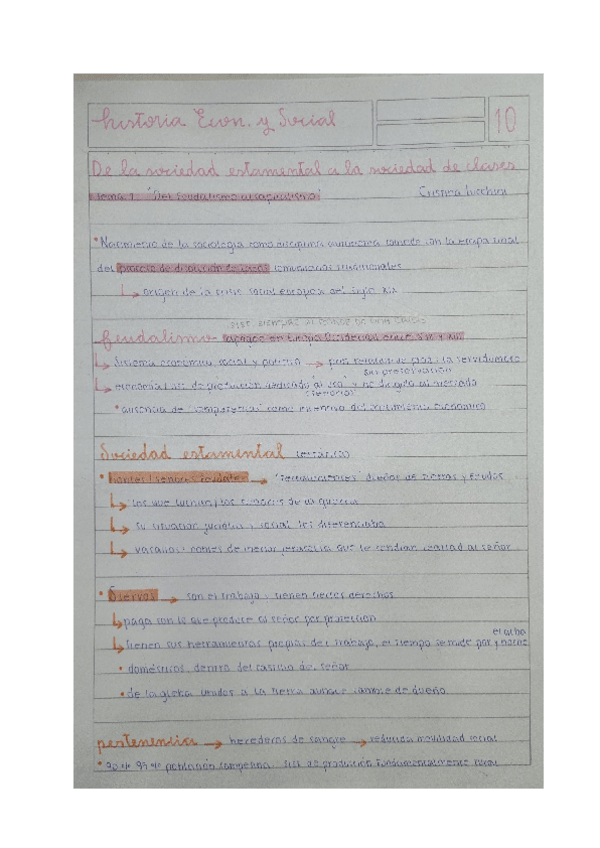 historia Econ. y Social
10
De la sociedad estamental a la sociedad de clases
Tema 1: "Del feudalismo al capitalismo"
Cristina Lucchini
• Nacimiento de la sociología como disciplina coincide con la etapa final
del proceso de disolución de las comunidades tradicionales
origen de la crisis social europea del siglo XIX
feudalismo - en Europa Occidental entre S IX y XIII
Sistema económico, social y político → la servidumbre
economía de producción dedicado "al uso" y no dirigido al mercado
• ausencia de "competencia" como incentivo del crecimiento económico
Sociedad estamental
• Nobles / Señores feudales → "Terratenientes" dueños de tierras y feudos
los que luchan / los de la guerra
su situación jurídica y social los diferenciaba
vasallos: nobles de menor jerarquía que le rendían lealtad al señor
• Siervos → son el trabajo y tienen ciertos derechos
paga con lo que produce al señor por protección
el día
tienen sus herramientas propias del trabajo, el tiempo se mide por y noche
• domésticos: dentro del castillo del señor
• de la gleba: unidos a la tierra aunque cambie de dueño
pertenencia → herederos de sangre → reducida movilidad social
• 90 % población campesina sist. de producción fundamentalmente rural